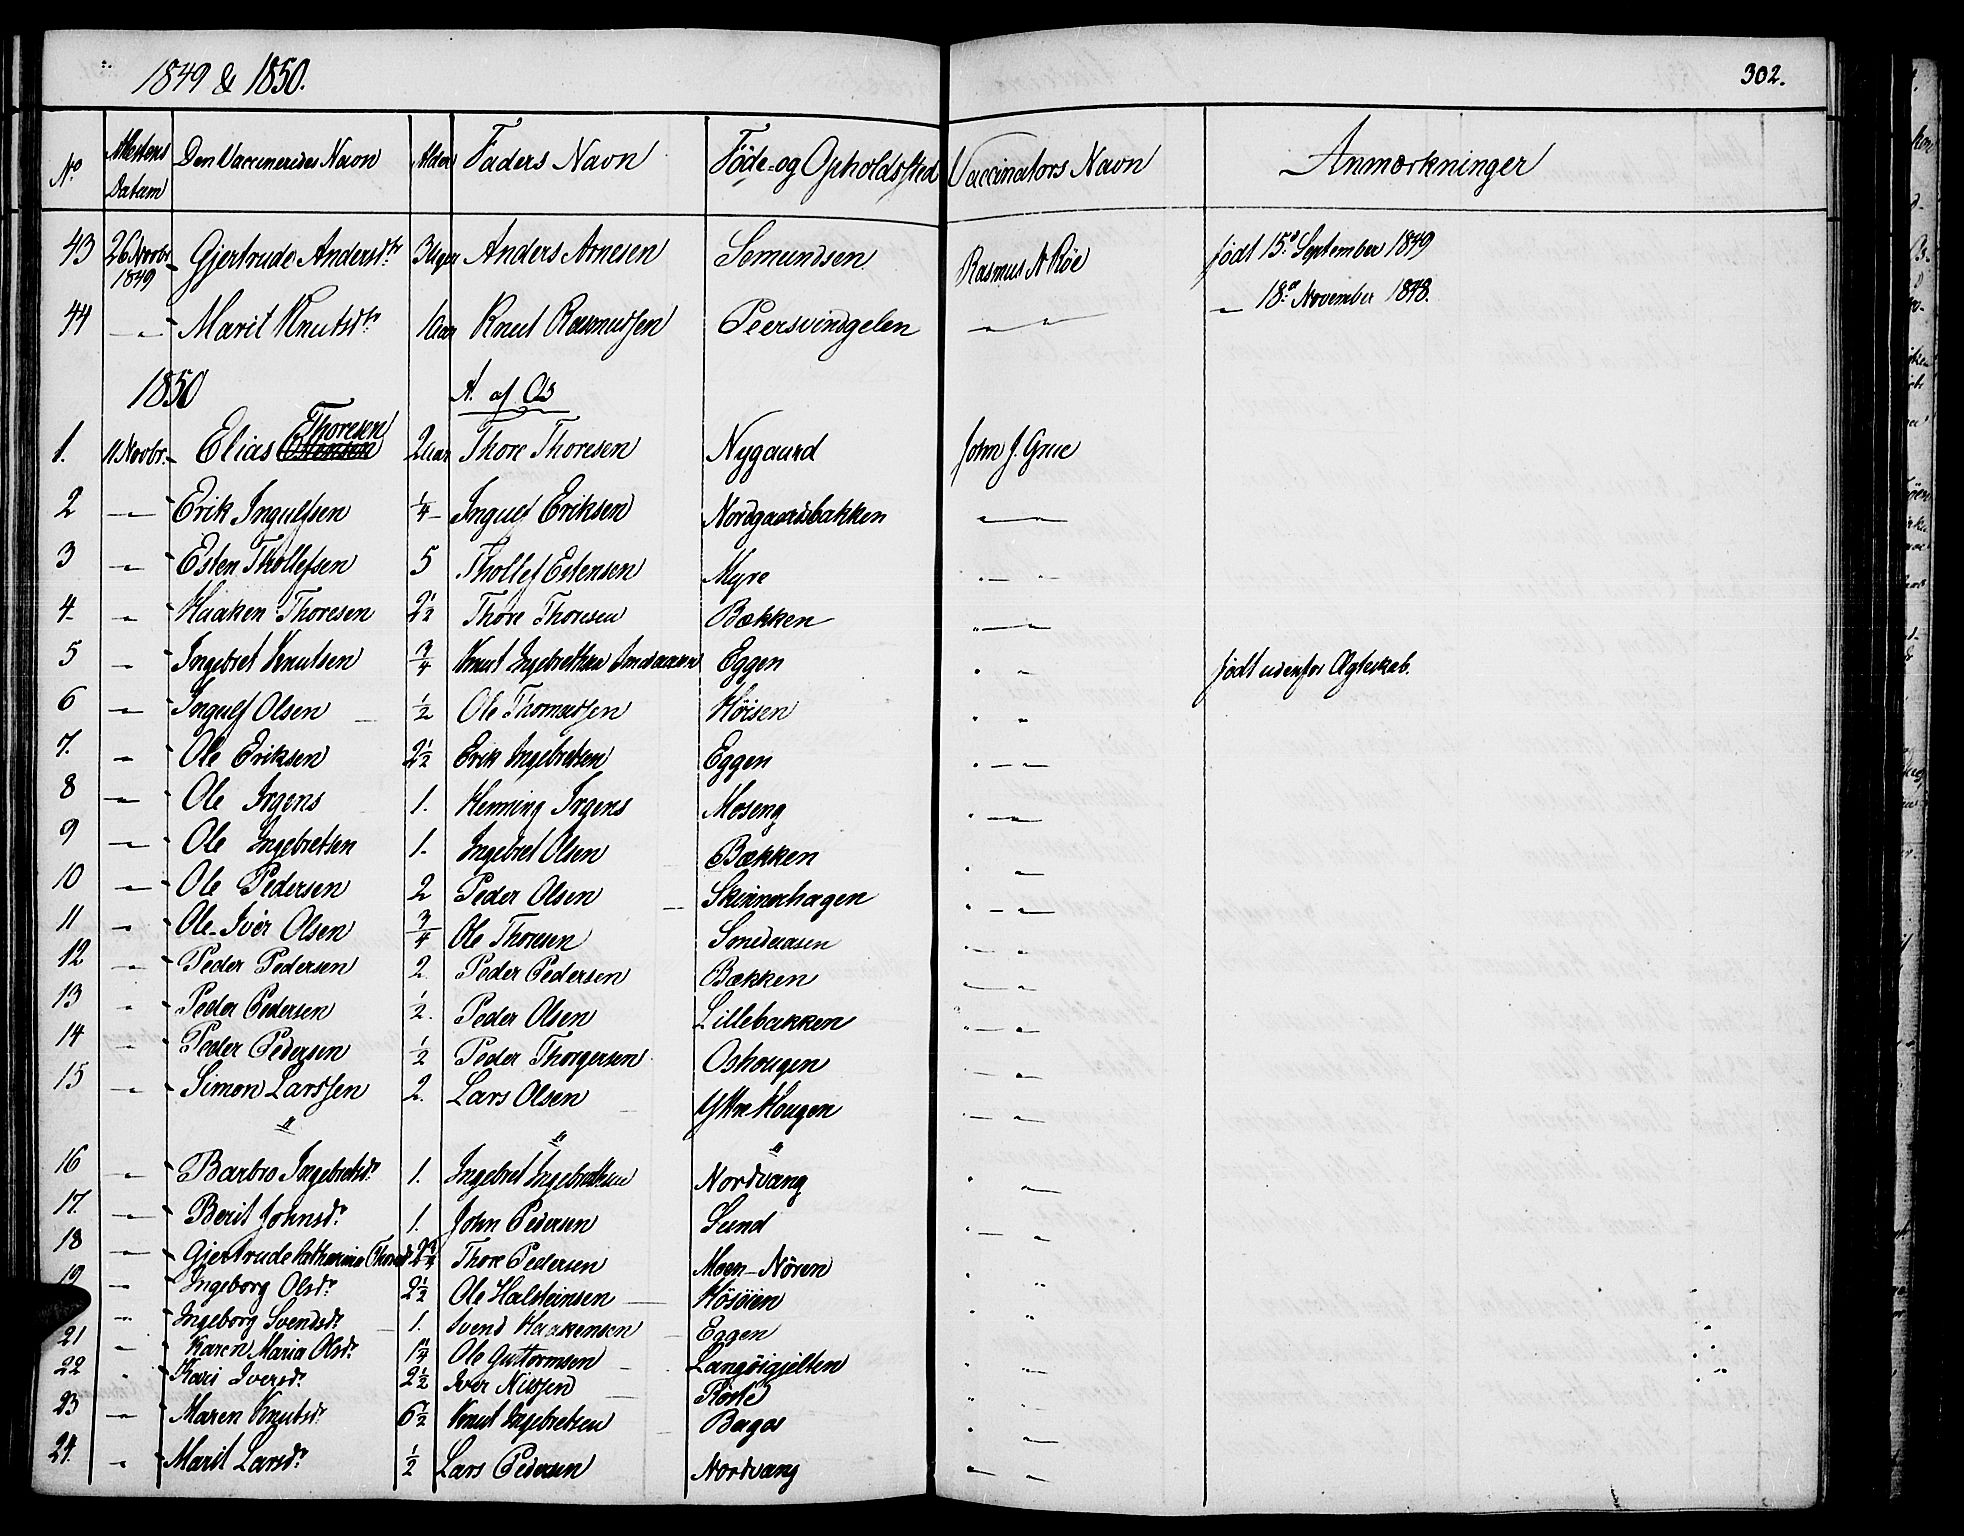 1849 & 1850.
302.
No Attestens Datum Den Vaccineredes Navn Alder Faders Navn Föde- og Opholdssted Vaccinators Navn Anmærkninger
43 26 Novbr 1849 Gjertrude Andersdr. 3 Uger Anders Arnesen Semundsen Rasmus A Röe født 15de September 1849
44 — " — Marit Knutsdr. 1 Aar Knut Rasmussen Peersvindgelen — " — " — 18de November 1848.
1850 A. af Os
1. 11 Novbr. Elias Thoresen 2 Aar Thore Thoresen Nygaard John J. Grue
2 — " — Erik Ingulfsen 1/4 Ingulf Eriksen Nordgaardsbakken — " —
3 — " — Esten Thollefsen 5 Thollef Estensen Myre " — " —
4 — " — Haaken Thoresen 2 1/2 Thore Thoresen Bækken " — " —
5 — " — Ingebret Knutsen 3/4 Knut Ingebretsen Smedaasen Eggen " " født udenfor Ægteskab.
6 — " — Ingulf Olsen 1/2 Ole Thomassen Höisen " "
7. — " — Ole Eriksen 2 1/2 Erik Ingebretsen Eggen " — " —
8 — " — Ole Irgens 1. Henning Irgens Moseng " — " —
9 — " — Ole Ingebretsen 1. Ingebret Olsen Bækken " — " —
10 — " — Ole Pedersen 2 Peder Olsen Skinnerhagen " — " —
11 — " — Ole-Iver Olsen 3/4 Ole Thoresen Smedaasen " — " —
12 — " — Peder Pedersen 2 Peder Pedersen Bækken " — " —
13 " Peder Pedersen 1/2. Peder Olsen Lillebakken " — " —
14 — " — Peder Pedersen 1/2 Peder Thorgersen Oshougen " — " —
15 — " — Simon Larssen 2. Lars Olsen Yttre Hougen " — " —
" " "
16 — " — Barbro Ingebretsdr. 1. Ingebret Ingebretsen Nordvang " — " —
17. — " — Berit Johnsdr. 1. John Pedersen Sund " — " —
18 — " — Gjertrude Kathrina Thoresdr 2 3/4 Thore Pedersen Moen-Nören " "
19 — " — Ingeborg Olsdr. 2 1/2 Ole Halsteinsen Hösöien " "
— " — Ingeborg Svendsdr. 1. Svend Haakensen Eggen
21 — " — Karen Maria Olsdr. 1 1/4 Ole Guttormsen Langöigjelten " — " —
22 " Kari Iversdr. 2 1/2 Iver Nilssen " "
23 — " — Maren Knutsdr. 6 1/2 Knut Ingebretsen Bagaas " — " —
24. " Marit Larsdr. 1/2 Lars Pedersen Nordvang — " — " —